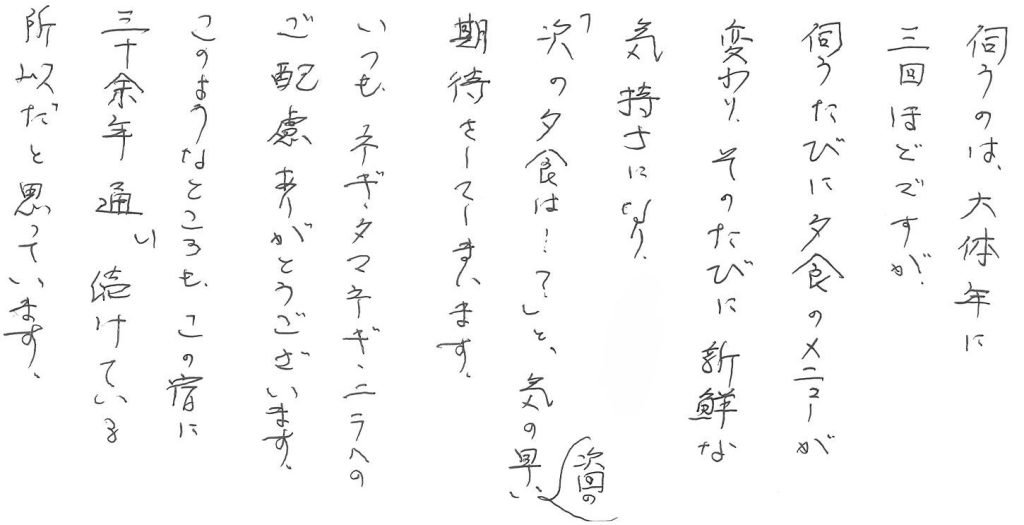 伺うのは、大体年に
三回ほどですが、
伺うたびに夕食のメニューが
変わり、そのたびに新鮮な
気持さになり、
「次の夕食は！？」と、気の早い
次回の
期待をしてしまいます。
いつも、ネギ・タマネギ・ニラへの
ご配慮ありがとうございます。
このようなところも、この宿に
三十余年通い続けている
所以だと思っています。